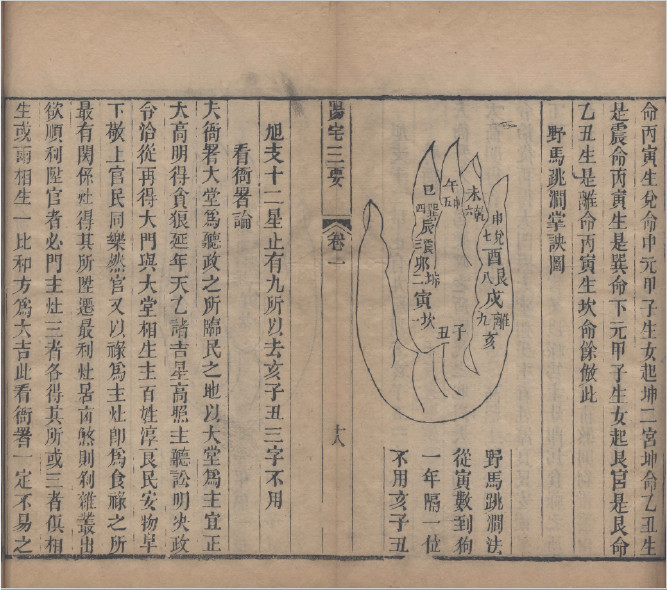 命丙寅生兌命中元甲子生女起坤二宮坤命乙丑生
是震命丙寅生是巽命下元甲子生女起艮宮是艮命
乙丑生是離命丙寅生坎命餘倣此
野馬跳澗掌訣圖
申兌七
酉艮八
戌離九
亥
未乾六
午中五
巳巽四
辰震三
卯坤二
寅坎一
子
丑
野馬跳澗法
從寅數到狗
一年隔一位
不用亥子丑
陽宅三要
卷一
十八
旭支十二星止有九所以去亥子丑三字不用
看衙署論
夫衙署大堂為聽政之所臨民之地以大堂為主宜正
大高明得貪狼延年天乙諸吉星高照主聽訟明決政
令洽從再得大門與大堂相生主百姓淳良民安物阜
下敬上官民同樂然官又以祿為主灶即為食祿之所
最有関係灶得其所陞遷最利灶居煞則雜叢出
欲順利陞官者必門主灶三者各得其所或三者俱相
生或兩相生一比和方為大吉此看衙署一定不易之